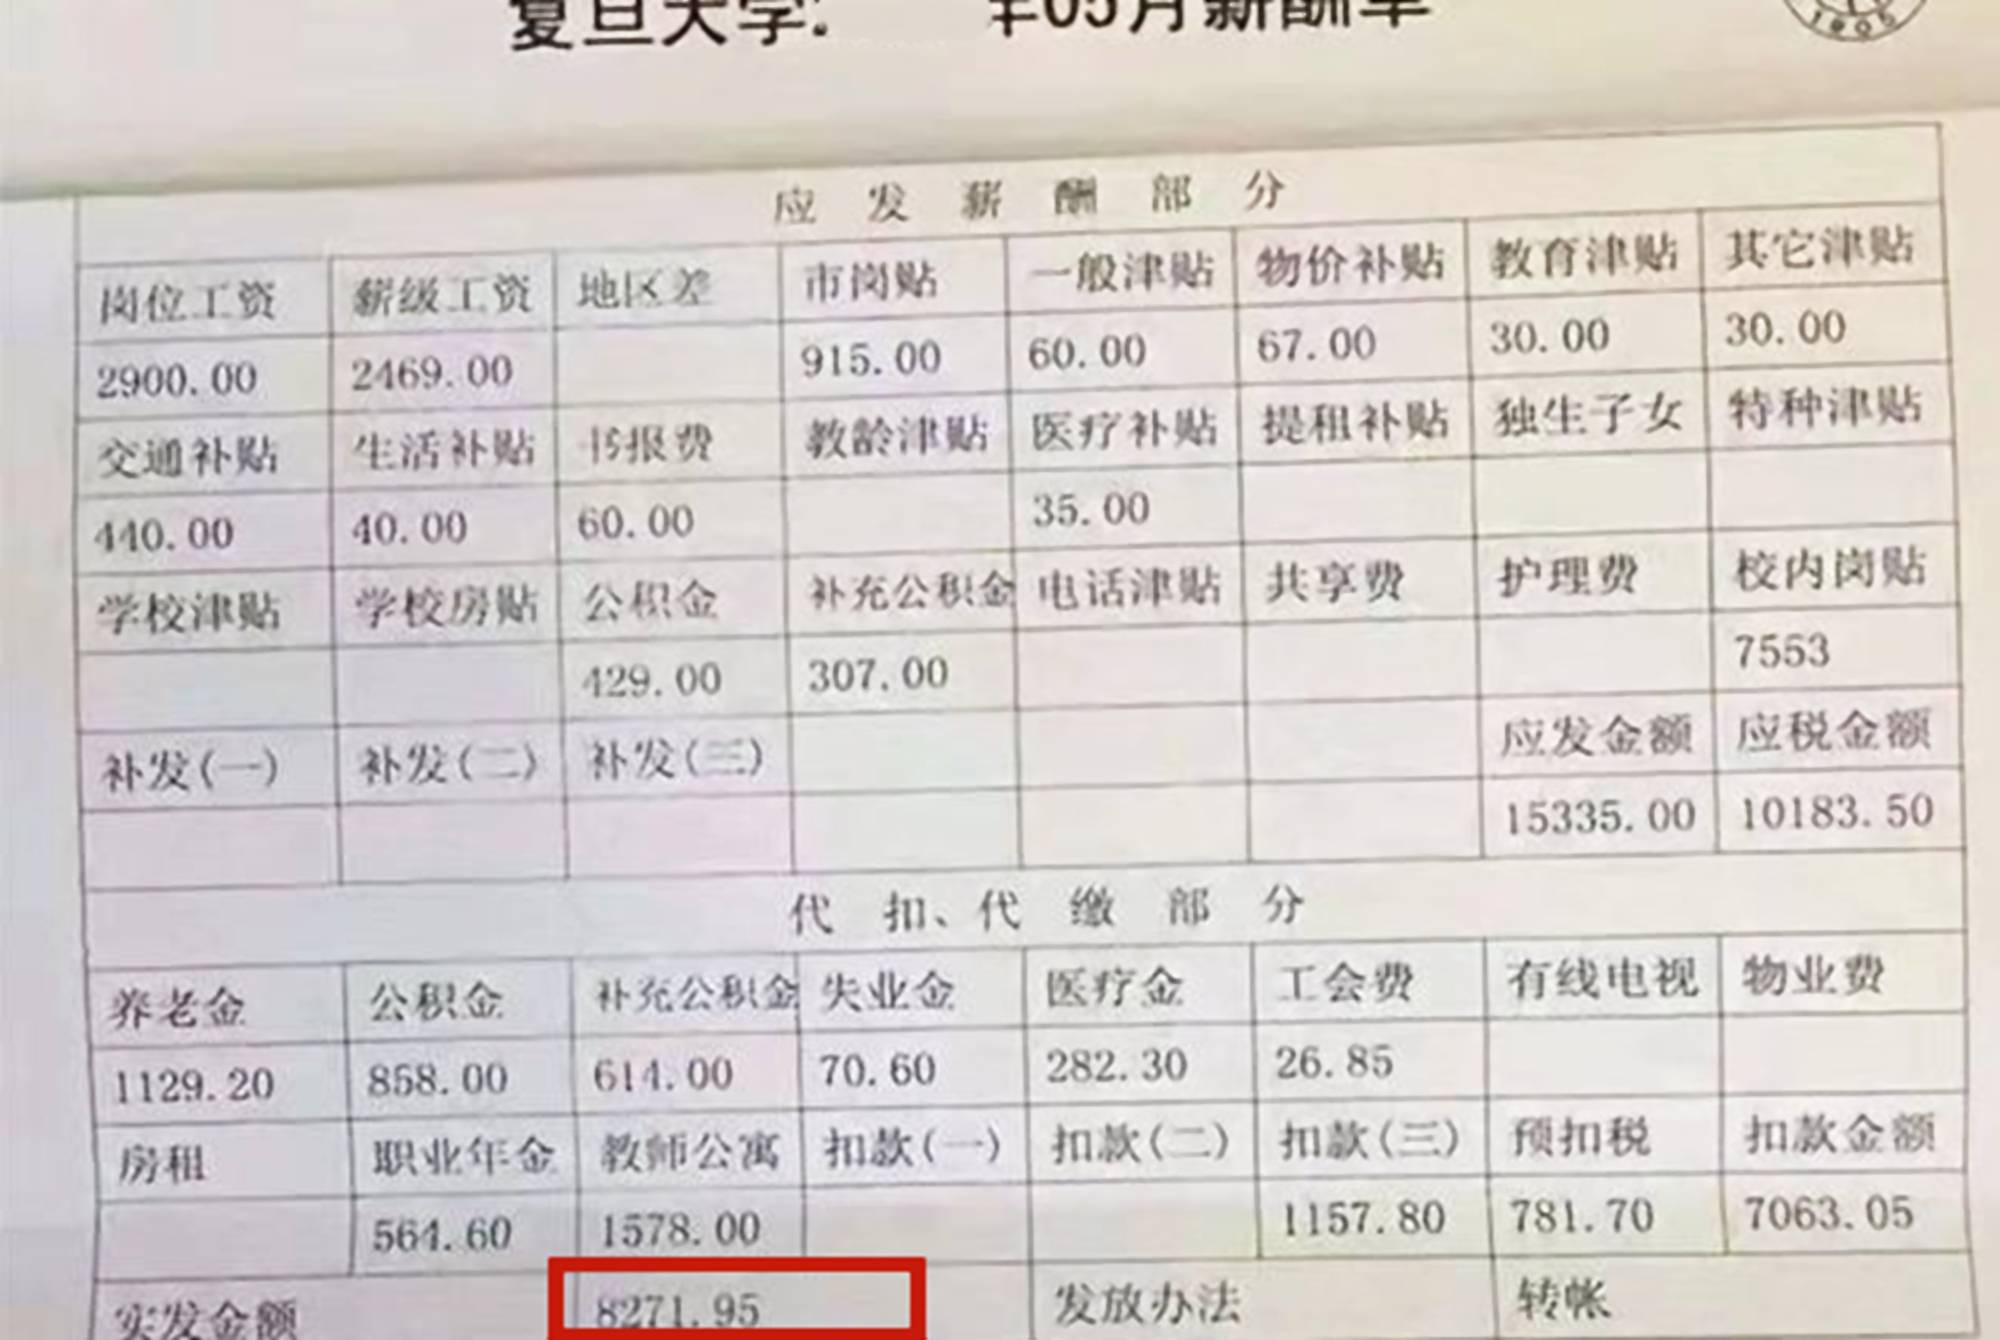 复旦大学 年05月薪酬单
1905
应发薪酬部分
岗位工资 薪级工资 地区差 市岗贴 一般津贴 物价补贴 教育津贴 其它津贴
2900.00 2469.00 915.00 60.00 67.00 30.00 30.00
交通补贴 生活补贴 书报费 教龄津贴 医疗补贴 提租补贴 独生子女 特种津贴
440.00 40.00 60.00 35.00
学校津贴 学校房贴 公积金 补充公积金 电话津贴 共享费 护理费 校内岗贴
429.00 307.00 7553
补发(一) 补发(二) 补发(三) 应发金额 应税金额
15335.00 10183.50
代扣、代缴部分
养老金 公积金 补充公积金 失业金 医疗金 工会费 有线电视 物业费
1129.20 858.00 614.00 70.60 282.30 26.85
房租 职业年金 教师公寓 扣款(一) 扣款(二) 扣款(三) 预扣税 扣款金额
564.60 1578.00 1157.80 781.70 7063.05
实发金额 8271.95 发放办法 转帐